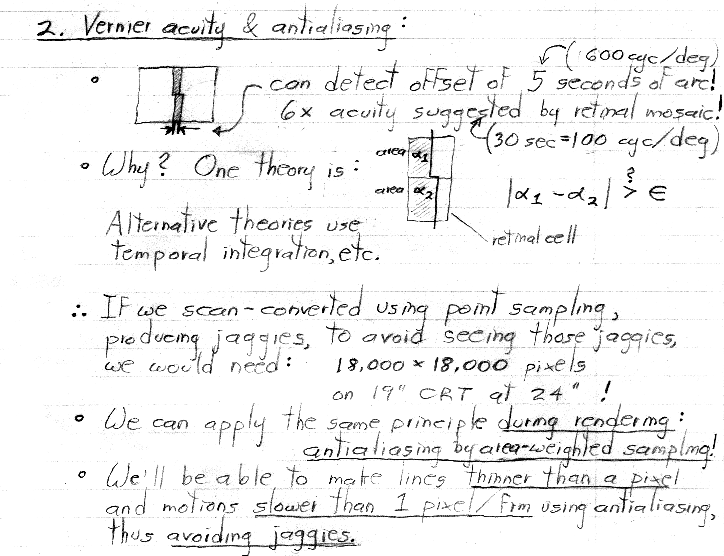 2. Vernier acuity & antialiasing:
(600 cyc/deg)
• can detect offset of 5 seconds of arc!
6x acuity suggested by retinal mosaic!
(30 sec = 100 cyc/deg)
• Why? One theory is:
area α1
area α2
|α1 - α2| ?> ∈
retinal cell
Alternative theories use
temporal integration, etc.
∴ If we scan-converted using point sampling,
producing jaggies, to avoid seeing those jaggies,
we would need: 18,000 × 18,000 pixels
on 19" CRT at 24" !
• We can apply the same principle during rendering:
antialiasing by area-weighted sampling!
• We'll be able to make lines thinner than a pixel
and motions slower than 1 pixel/frm using antialiasing,
thus avoiding jaggies.